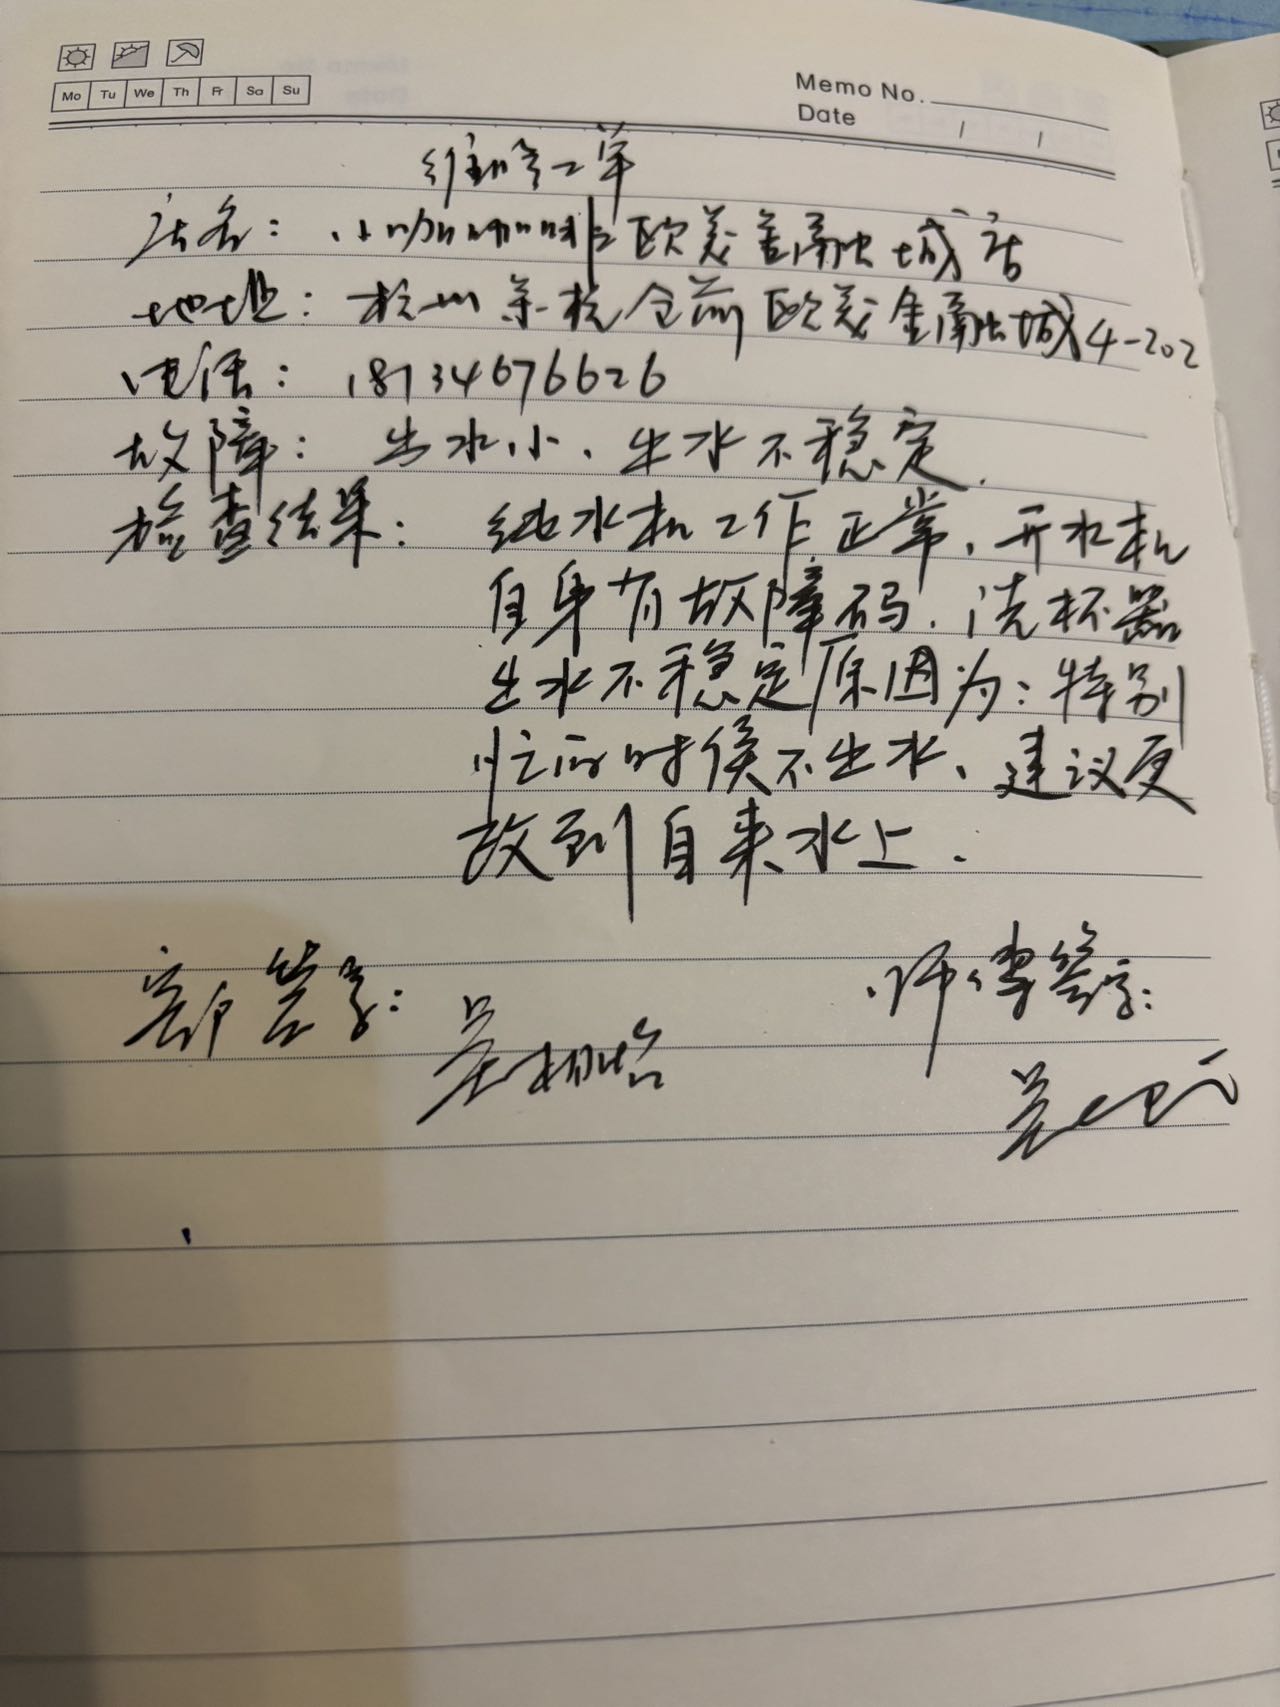 Mo Tu We Th Fr Sa Su
Memo No.
Date / /
维修工单
店名：小咖咖啡欧美金融城店
地址：杭州余杭仓前欧美金融城4-202
电话：18734676626
故障：出水小、出水不稳定.
检查结果：纯水机工作正常、开水机
自身有故障码.洗杯器
出水不稳定原因为：特别
忙的时候不出水、建议更
改到自来水上.
客户签字：
师傅签字：